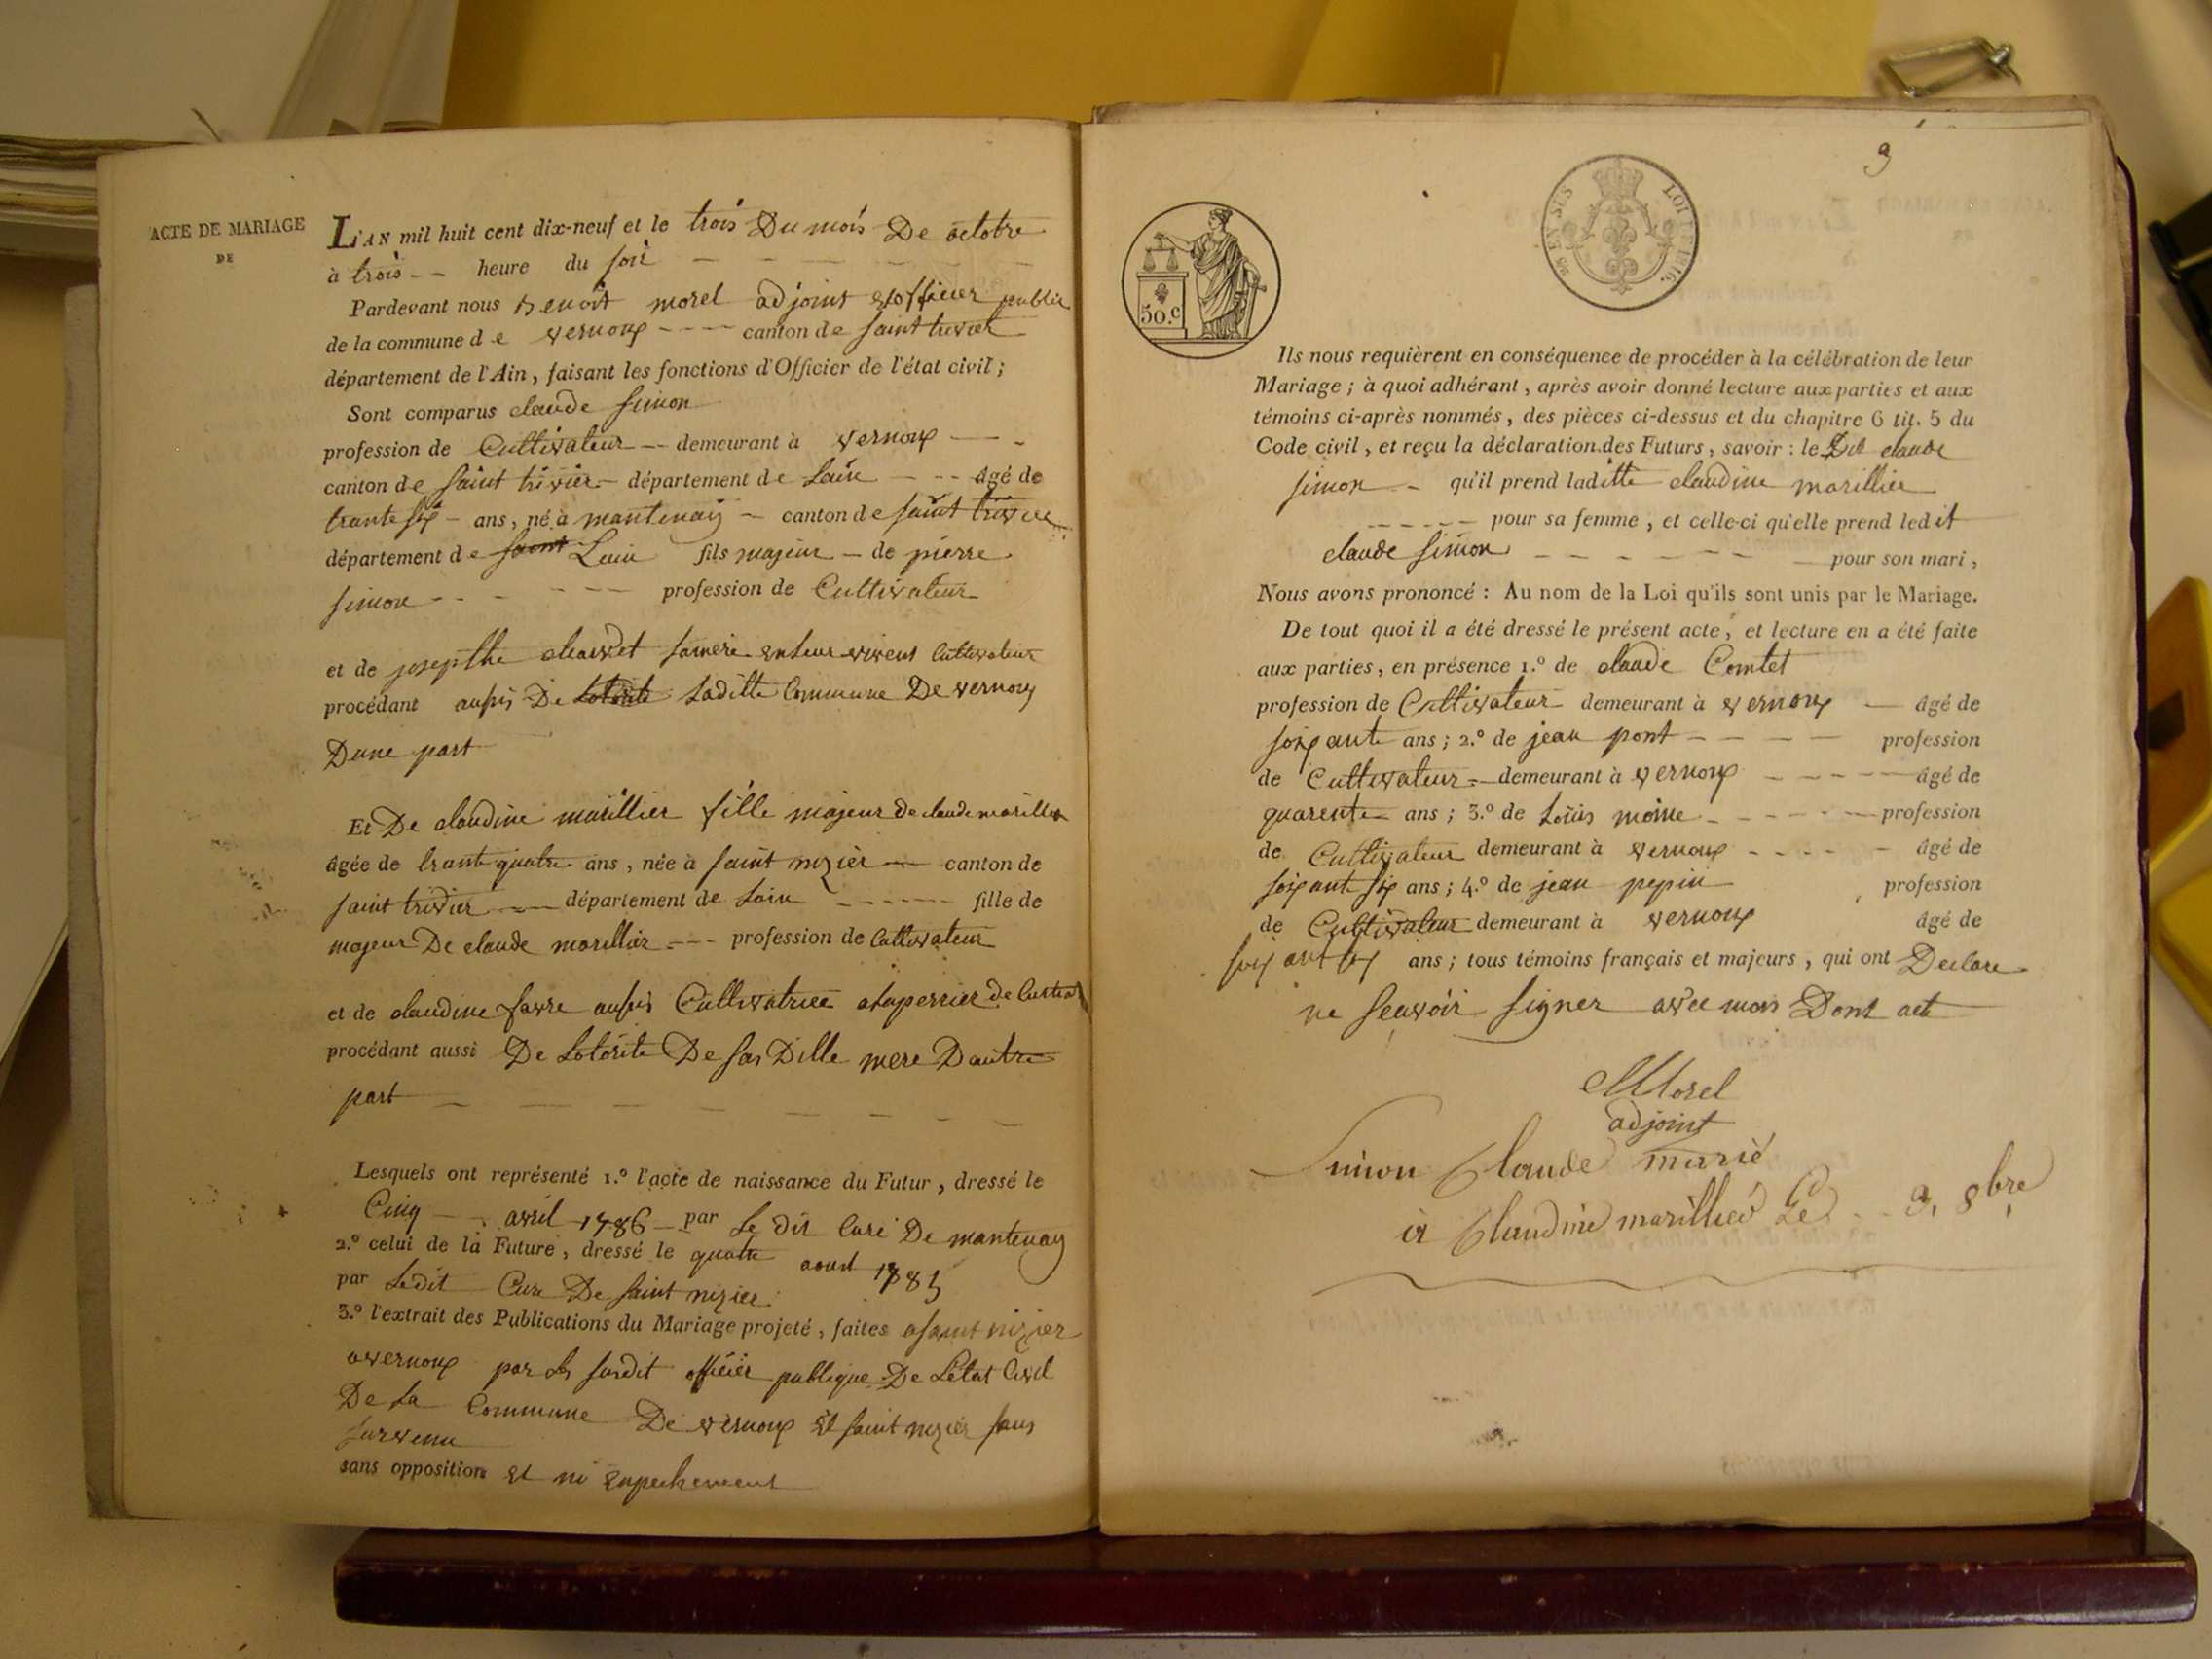 ACTE DE MARIAGE
DE
L'AN mil huit cent dix-neuf et le trois Du mois De octobre
à trois -- heure du soir
Pardevant nous Benoit morel adjoint et officier public
de la commune de vernoux ---- canton de saint trivier
département de l'Ain, faisant les fonctions d'Officier de l'état civil ;
Sont comparus claude simon
profession de Cultivateur -- demeurant à vernoux
canton de saint trivier - département de Lain -- âgé de
trante six - ans, né à mantenay - canton de saint trivier
département de saint Lain fils majeur - de pierre
simon - - - profession de Cultivateur
et de josepthe chavet samere vivent Cultivateur
procédant aussi De Laditte Commune De vernoux
Dune part
Et De claudine marillier fille majeur de claude marillier
âgée de trante quatre ans, née à saint nizier -- canton de
saint trivier -- département de Lain ------ fille de
majeur De claude marillier --- profession de Cultivateur
et de claudine favre aussi Cultivatrice
procédant aussi De Lotorite De sas Ditte mere Dautre
part
Lesquels ont représenté 1.º l'acte de naissance du Futur, dressé le
Cinq -- avril 1786 - par Le dit Curé De mantenay
2.º celui de la Future, dressé le quatre aout 1785
par Ledit Cure De saint nizier
3.º l'extrait des Publications du Mariage projeté, faites asaint nizier
avernoux par Le susdit officier publique De Létat Civil
De La Commune De vernoux Et saint nizier sans
survenu
sans opposition et ni enpechement
9
EN SUS LOI DE 1816.
50.c
Ils nous requièrent en conséquence de procéder à la célébration de leur
Mariage ; à quoi adhérant, après avoir donné lecture aux parties et aux
témoins ci-après nommés, des pièces ci-dessus et du chapitre 6 tit. 5 du
Code civil, et reçu la déclaration des Futurs, savoir : le Dit claude
simon - qu'il prend laditte claudine marillier
----- pour sa femme, et celle-ci qu'elle prend ledit
claude simon - - - - - - pour son mari,
Nous avons prononcé : Au nom de la Loi qu'ils sont unis par le Mariage.
De tout quoi il a été dressé le présent acte, et lecture en a été faite
aux parties, en présence 1.º de claude Comtet
profession de Cultivateur demeurant à vernoux -- âgé de
soixante ans ; 2.º de jean pont - - - - profession
de Cultivateur - demeurant à vernoux - - - - âgé de
quarente ans ; 3.º de Louis moine - - - - - profession
de Cultivateur demeurant à vernoux - - - - âgé de
soixant six ans ; 4.º de jean pepin profession
de Cultivateur demeurant à vernoux âgé de
soixant six ans ; tous témoins français et majeurs, qui ont Declare
ne seavoir signer avec mois Dont act
Morel
adjoint
Simon Claude marié
à Claudine marillier Le 3, 8bre